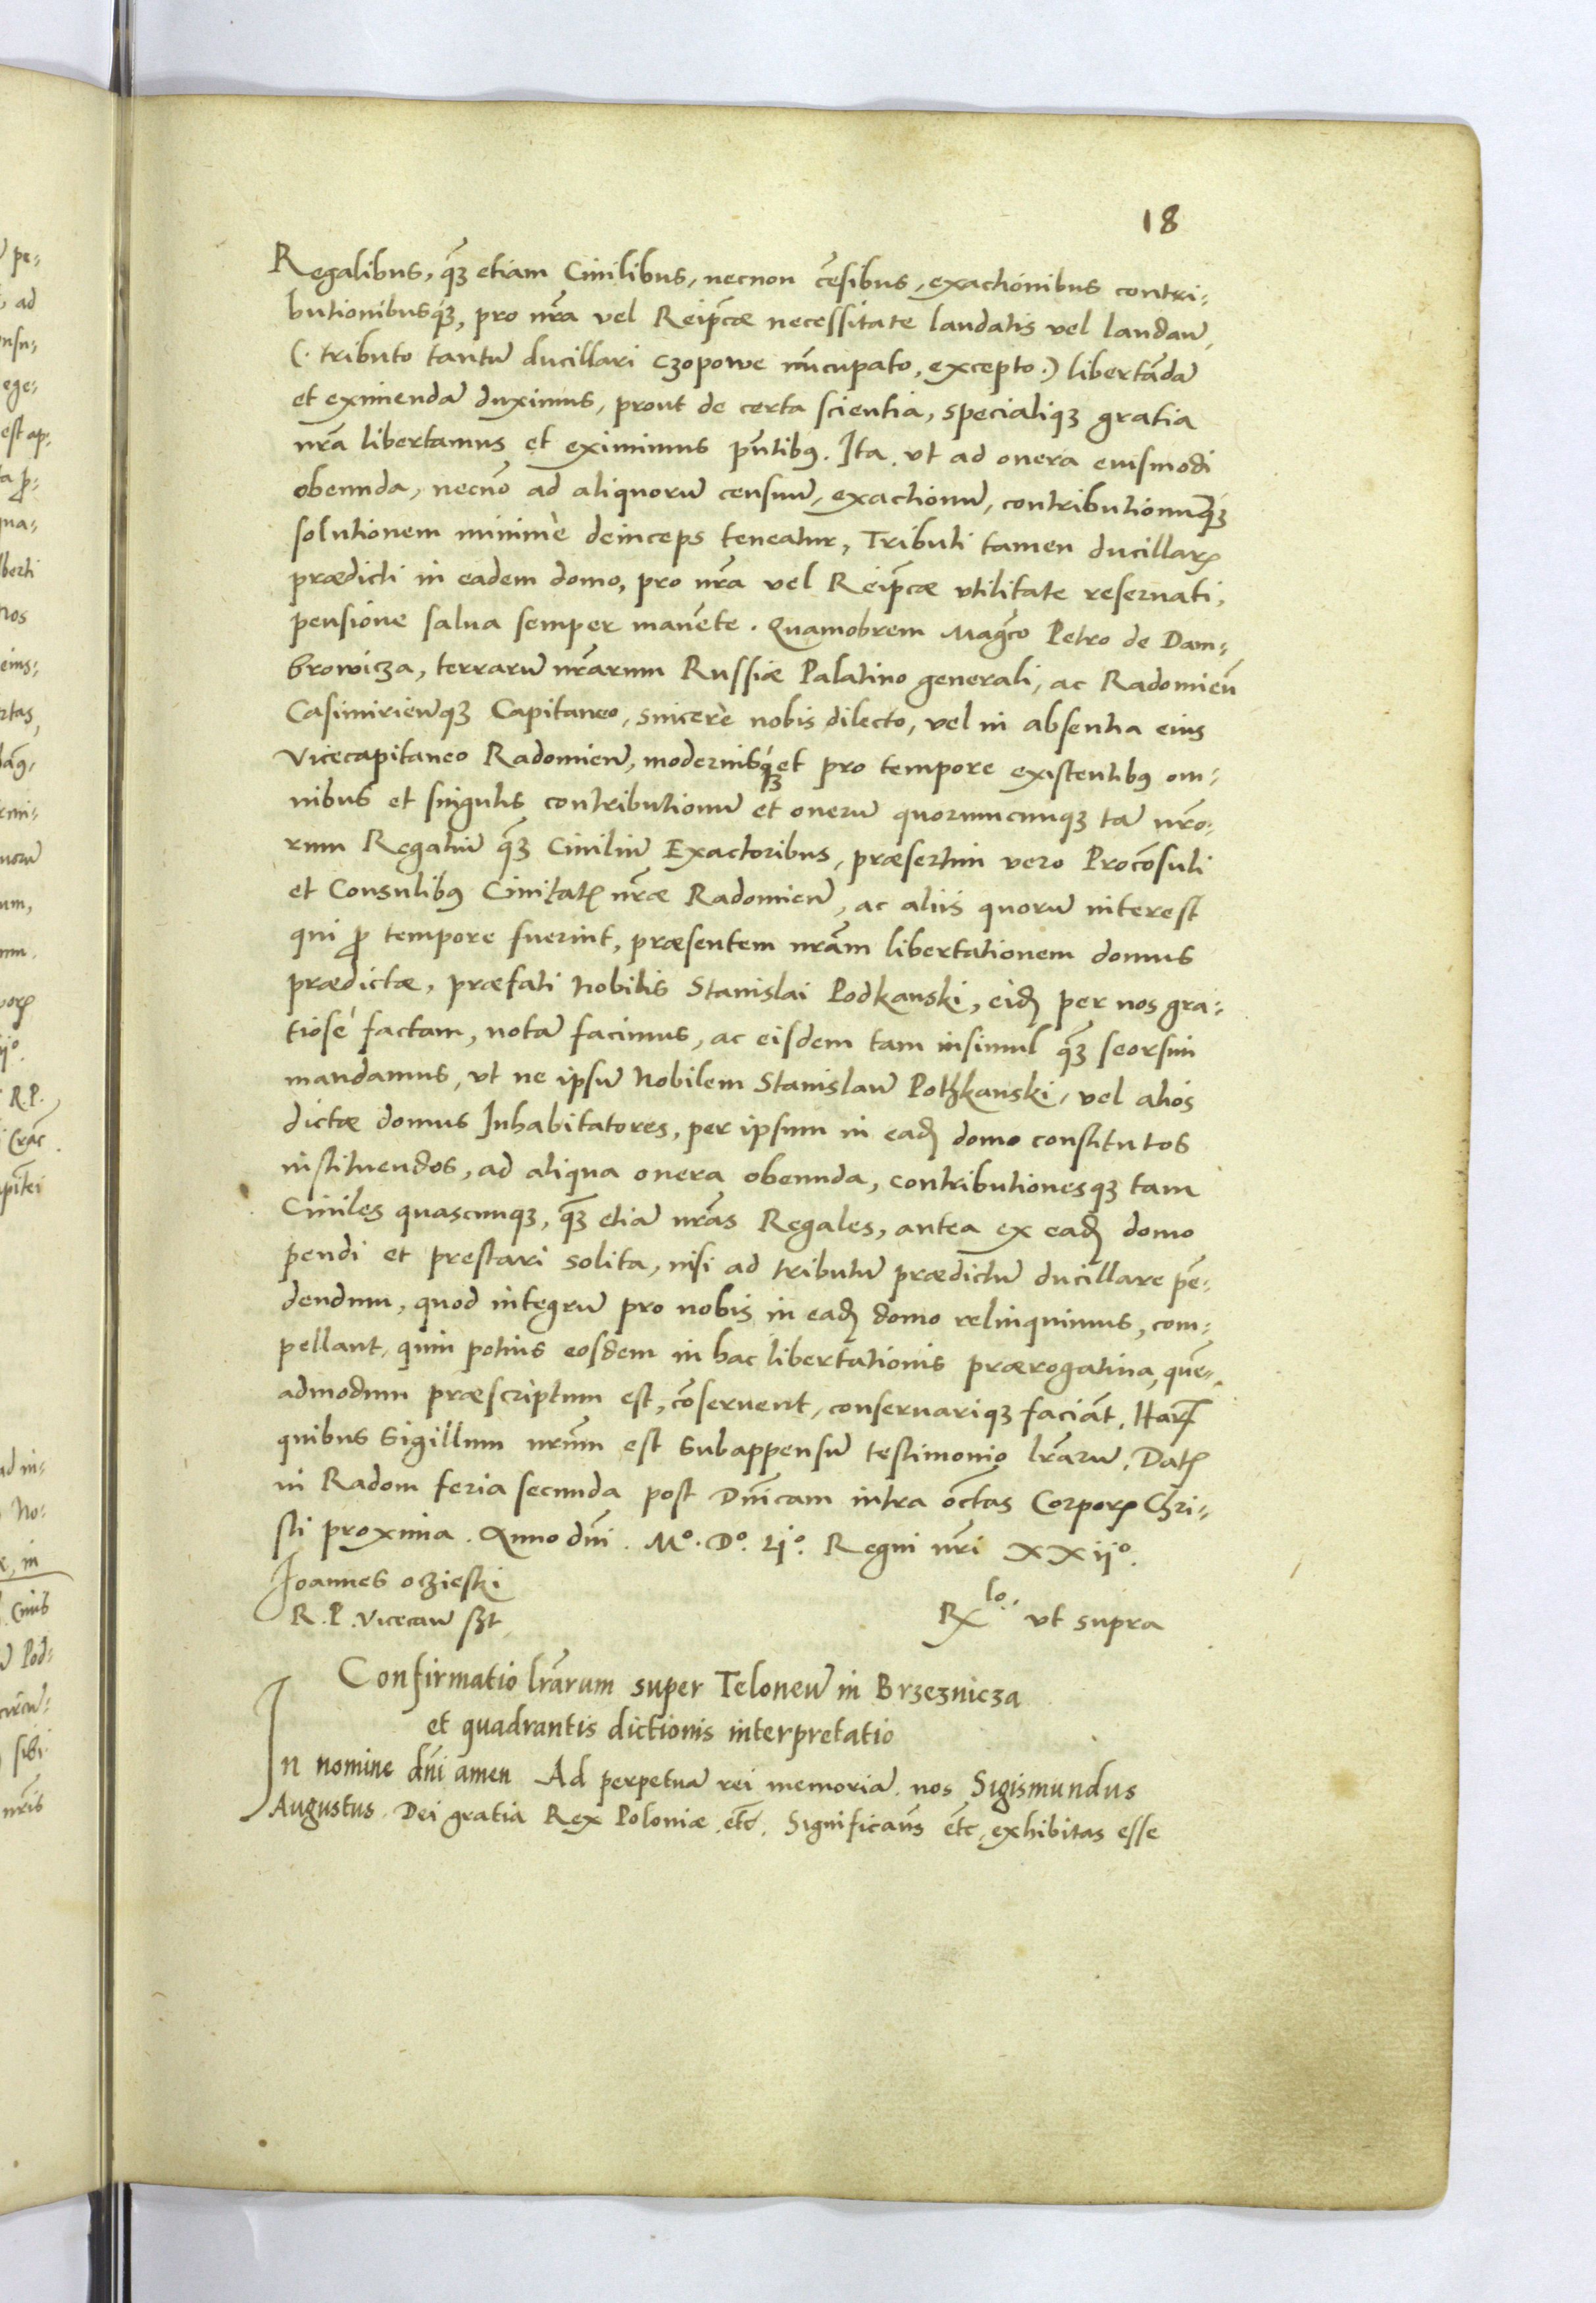 18
Regalibus, q̃ꝫ etiam Ciuilibus, necnon cẽsibus, exactionibus contri-
butionibusq́ꝫ, pro nr̃a vel Reipc̃æ necessitate laudatis vel laudañ,
(· tributo tantũ ducillari czopowe nũcupato, excepto ·) libertãdã
et eximendã duximus, prout de certa scientia, specialiqꝫ gratia
nr̃a libertamus et eximimus pñtibꝰ. Ita vt ad onera eiusmodi
obeunda, necnõ ad aliquorũ censuũ, exactionũ, contributionũq́ꝫ
solutionem minimè deinceps teneatur, Tributi tamen ducillarꝭ
prædicti in eadem domo, pro nr̃a vel Reipc̃æ vtilitate reseruati,
pensione salua semper manẽte. Quamobrem Mag̃co Petro de Dam-
browicza, terrarũ nr̃arum Russiæ Palatino generali, ac Radomieñ
Casimirieñqꝫ Capitaneo, sincerè nobis dilecto, vel in absentia eius
Vicecapitaneo Radomieñ, modernisq́ꝫ et pro tempore existentibꝰ om-
nibus et singulis contributionũ et onerũ quorumcunqꝫ tã nr̃o-
rum Regaliũ q̃ꝫ Ciuiliũ Exactoribus, præsertim vero Procõsuli
et Consulibꝰ Ciuitatꝭ nr̃æ Radomieñ, ac aliis quorũ interest
qui ꝓ tempore fuerint, præsentem nr̃am libertationem domus
prædictæ, præfati Nobilis Stanislai Podkanski, eidꝫ per nos gra-
tiosè factam, notã facimus, ac eisdem tam insimul q̃ꝫ seorsim
mandamus, vt ne ipsũ Nobilem Stanislaũ Pothkanski, vel alios
dictæ domus Inhabitatores, per ipsum in eadꝫ domo constitutos
instituendos, ad aliqua onera obeunda, contributionesqꝫ tam
Ciuiles quascunqꝫ, q̃ꝫ etiã nr̃as Regales, antea ex eadꝫ domo
pendi et prestari solita, nisi ad tributũ prædictũ ducillare pẽ-
dendum, quod integrũ pro nobis in eadꝫ domo relinquimus, com-
pellant, quin potius eosdem in hac libertationis prærogatiua, quẽ-
admodum præscriptum est, cõseruent, conseruariqꝫ faciãt. Harꝝ
quibus Sigillum nr̃um est subappensũ testimonio lr̃arũ. Datꝭ
in Radom feria secunda post Dñicam intra oc̃tas Corporꝭ Chri-
sti proxima. Anno dñi. Mº. Dº. Lıº. Regni nr̃i XXıjº.
Joannes oczieski
R. P. Vicecañ sβt
Rx lo. vt supra
Confirmatio lr̃arum super Teloneũ in Brzeznicza
et quadrantis dictionis interpretatio
In nomine dñi amen Ad perpetuã rei memoriã. nos Sigismundus
Augustus. Dei gratia Rex Poloniæ etc̃. Significam̃s etc̃, exhibitas esse